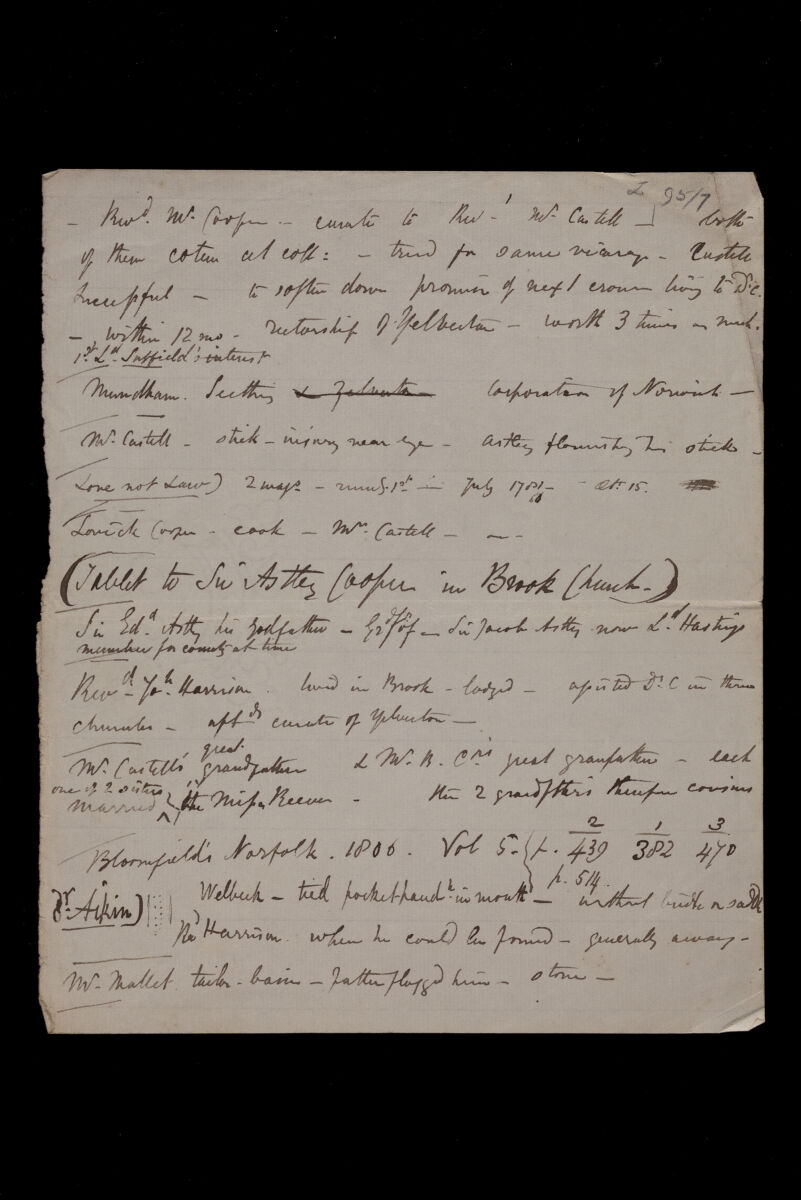 L 95/7
- Revd. Mr Cooper - curate to Revd Mr Castell - both
of them cotem at coll: - tried for same vicarage - Castell
successful - to soften down promise of next crown living to Dr. C.
- within 12 mo - rectorship of Yelverton - worth 3 times as much.
1st Ld. Suffield's interest
Mundham. Seething & Yelverton Corporation of Norwich -
Mr Castell - stick - injury near eye - Astley flourishing his stick -
Love not Law) 2 July 17 - æt. 15.
Lovick Cooper - cook - Mrs Castell -
(Tablet to Sir Astley Cooper in Brook Church -)
Sir Edd Astley his godfather - Grdf of - Sir Jacob Astley now Ld Hastings
member for county at time
Revd. Jos. Harrison. lived in Brook - lodged - assisted Dr. C in three
churches - aftds curate of Yelverton -
great
Mr. Castell's grandfather & Mr. B. Crs great granfather - each
one of 2 sisters
married the Misses Reeves - the 2 grandfthrs therefore cousins
2 1 3
Bloomfield's Norfolk. 1806. Vol 5. p. 439 382 470
p. 514.
Dr. Aikin) Welbeck - tied pockethandk. in mouth - without bridle or saddle
Rd Harrison. when he could be found - generally away -
Mr. Mallet. tailor - - father flogged him - stone -